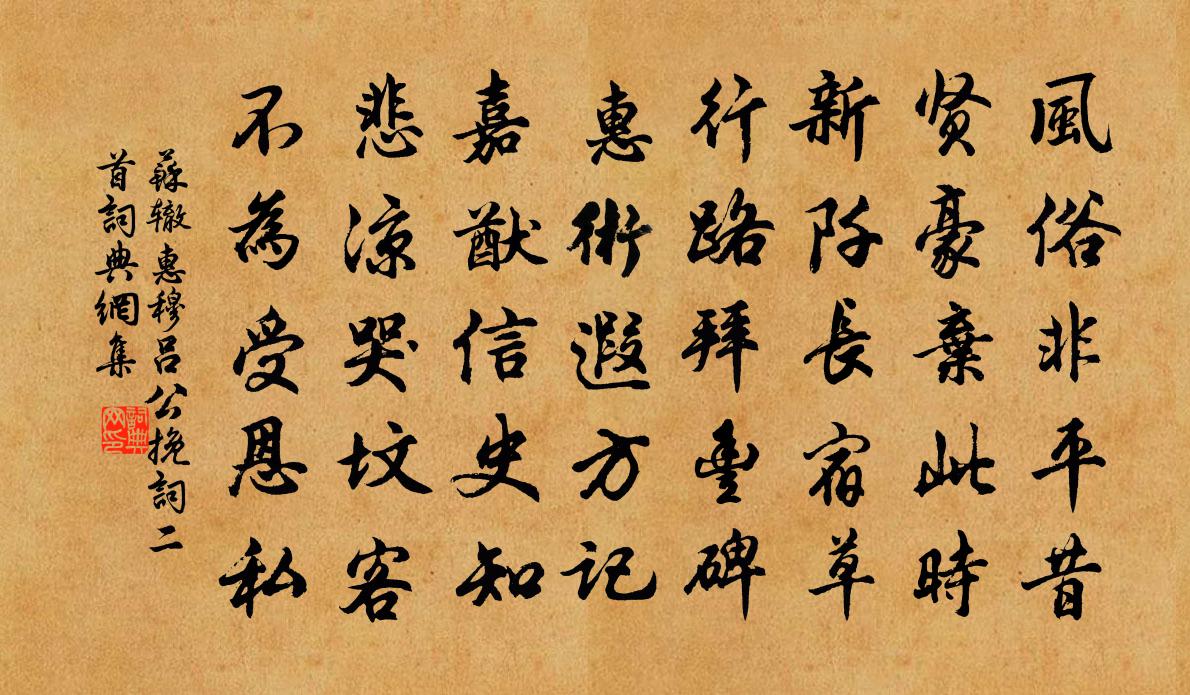 風俗非平昔
贤豪棄此時
新阡長宿草
行路拜豊碑
惠術遐方記
嘉猷信史知
悲凉哭坟客
不為受恩私
蘇辙惠穆呂公挽詞二
首詞典網集
詞典网印